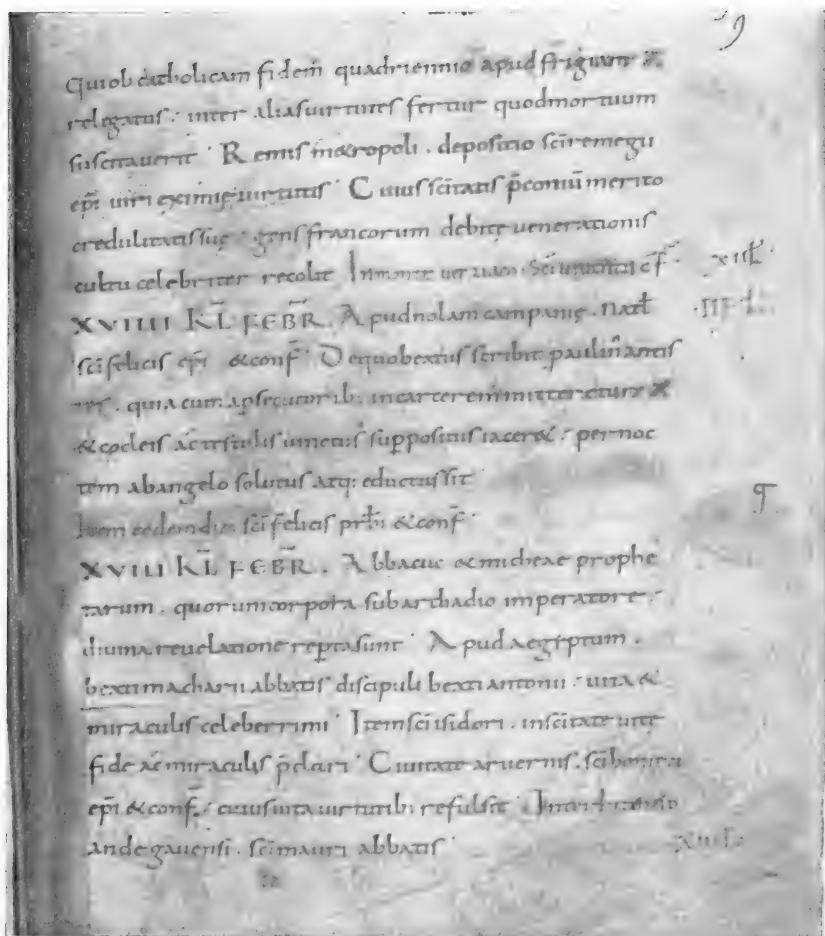 9
Qui ob catholicam fidem̄ quadriennio apud frigiam
relegatus · inter alias uirtutes fertur quod mortuum
suscitauerit · Remis metropoli · depositio sc̄i remegii
ep̄i uiri eximię uirtutis · Cuius sc̄itatis p̄coniū merito
credulitatis suę · gens francorum debitę uenerationis
cultu celebriter recolit In monte sc̄i c̄f
XVIIII KL̄ FEBR̄ . Apud nolam campanię . nat̄
sc̄i felicis ep̄i & conf̄ · De quo beatus scribit paulin̄ antis
tes . quia cum a p̄secutorib: in carcerem̄ mitteretur
& cocleis ac testulis uinctus suppositus iacer& · per noc
tem ab angelo solutus atq: eductus sit ·
Item eodem die sc̄i felicis prb̄i & conf̄ ·
XVIII KL̄ FEBR̄ . Abbacuc & micheae prophe
tarum . quorum corpora sub archadio imperatore ·
diuina reuelatione rep̄ta sunt · Apud aegyptum .
beati macharii abbatis discipuli beati antonii · uita &
miraculis celeberrimi · Item sc̄i isidori . in sc̄itate uitę
fide ac miraculis p̄clari · Ciuitate aruernis . sc̄i boniti
ep̄i & conf̄ · cuius uita uirtutib: refulsit · In
andegauensi . sc̄i mauri abbatis ·